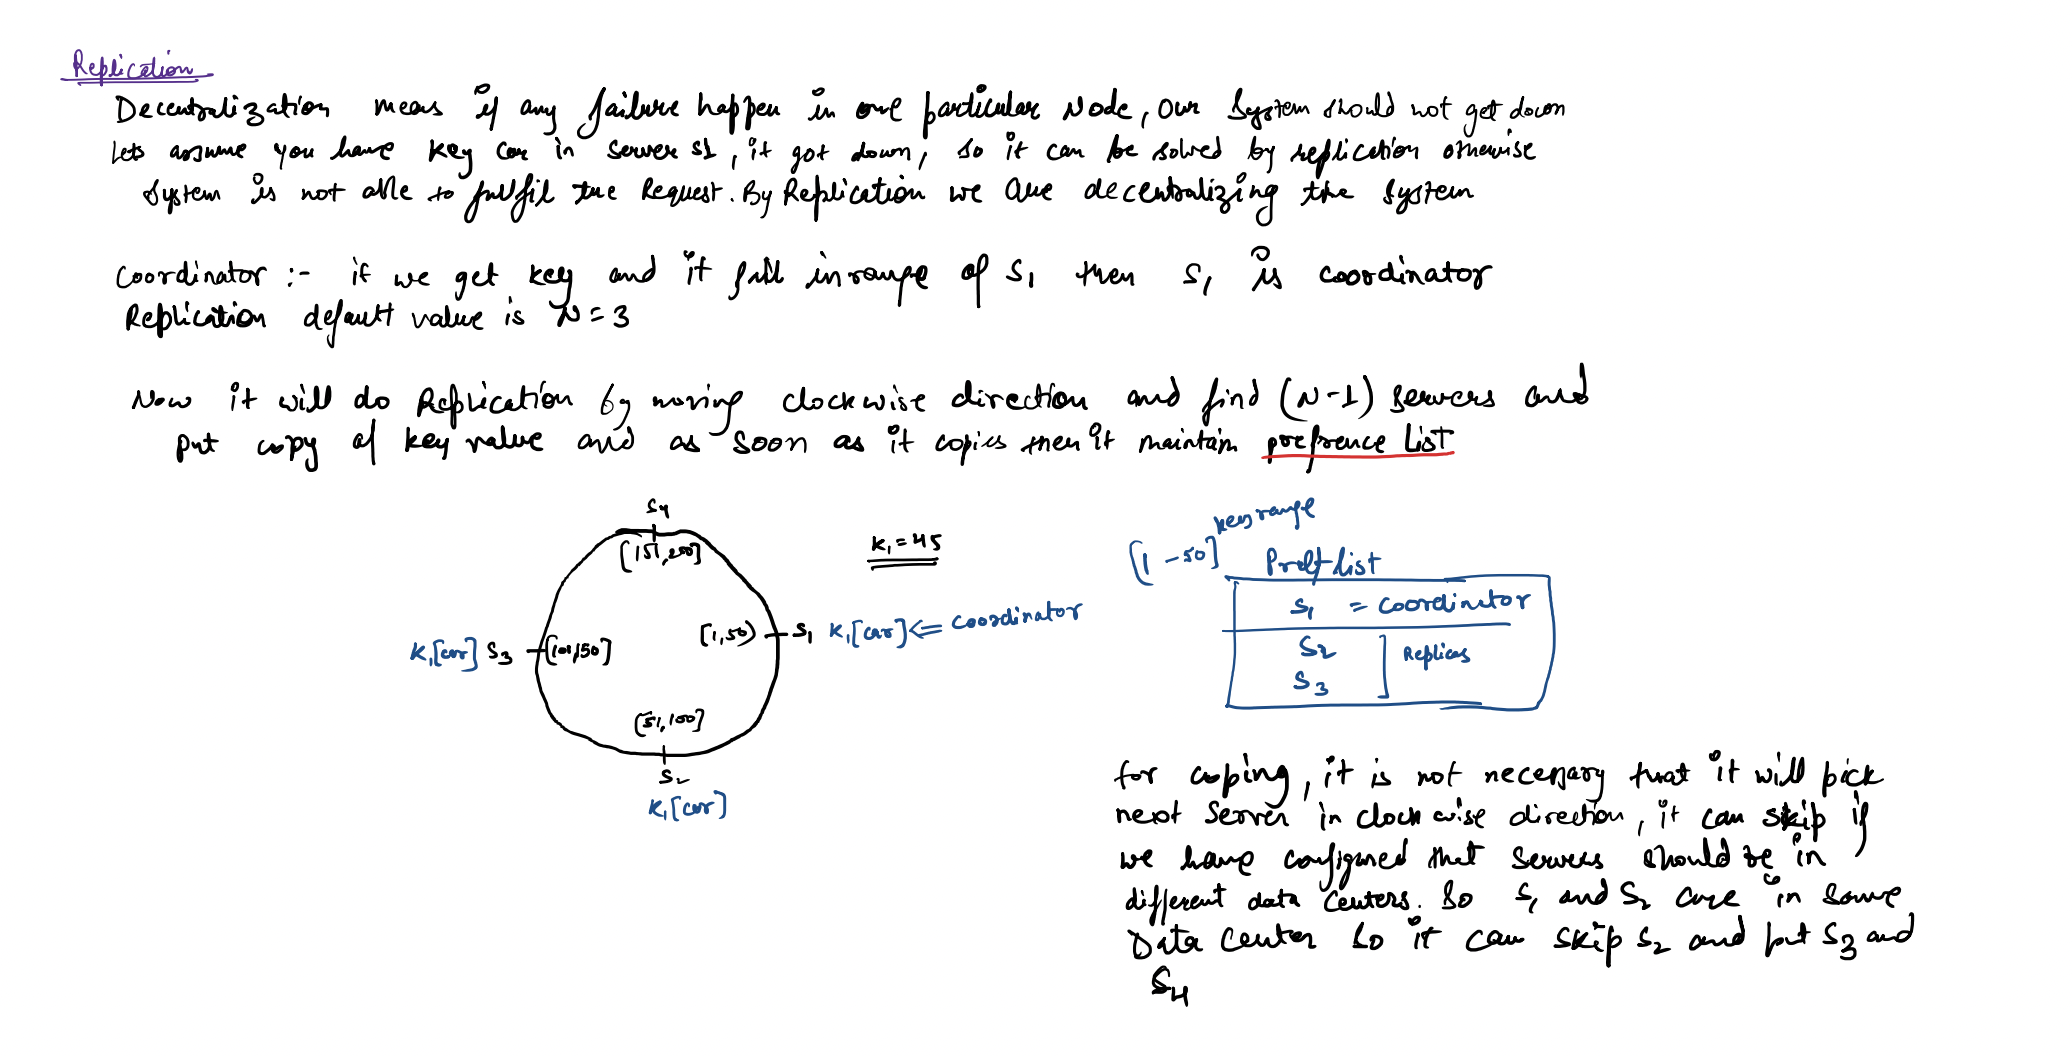 Replication
Decentralization means if any failure happen in one particular Node, our System should not get down
Lets assume you have key car in server s1, it got down, so it can be solved by replication otherwise
System is not able to fulfil the Request. By Replication we are decentralizing the System
Coordinator :- if we get key and it fall in range of S1 then S1 is coordinator
Replication default value is N = 3
Now it will do Replication by moving clockwise direction and find (N-1) servers and
put copy of key value and as soon as it copies then it maintain prefrence List
S4
[151,200]
K1=45
[1,50)
S1
K1[car] <= coordinator
K1[car] S3
[101,150]
[51,100]
S2
K1[car]
[1-50] key range
Preft list
S1 = coordinator
S2
S3
] Replicas
for coping, it is not necessary that it will pick
next Server in clock wise direction, it can skip if
we have configured that servers should be in
different data centers. So S1 and S2 are in same
Data Center so it can skip S2 and put S3 and
S4